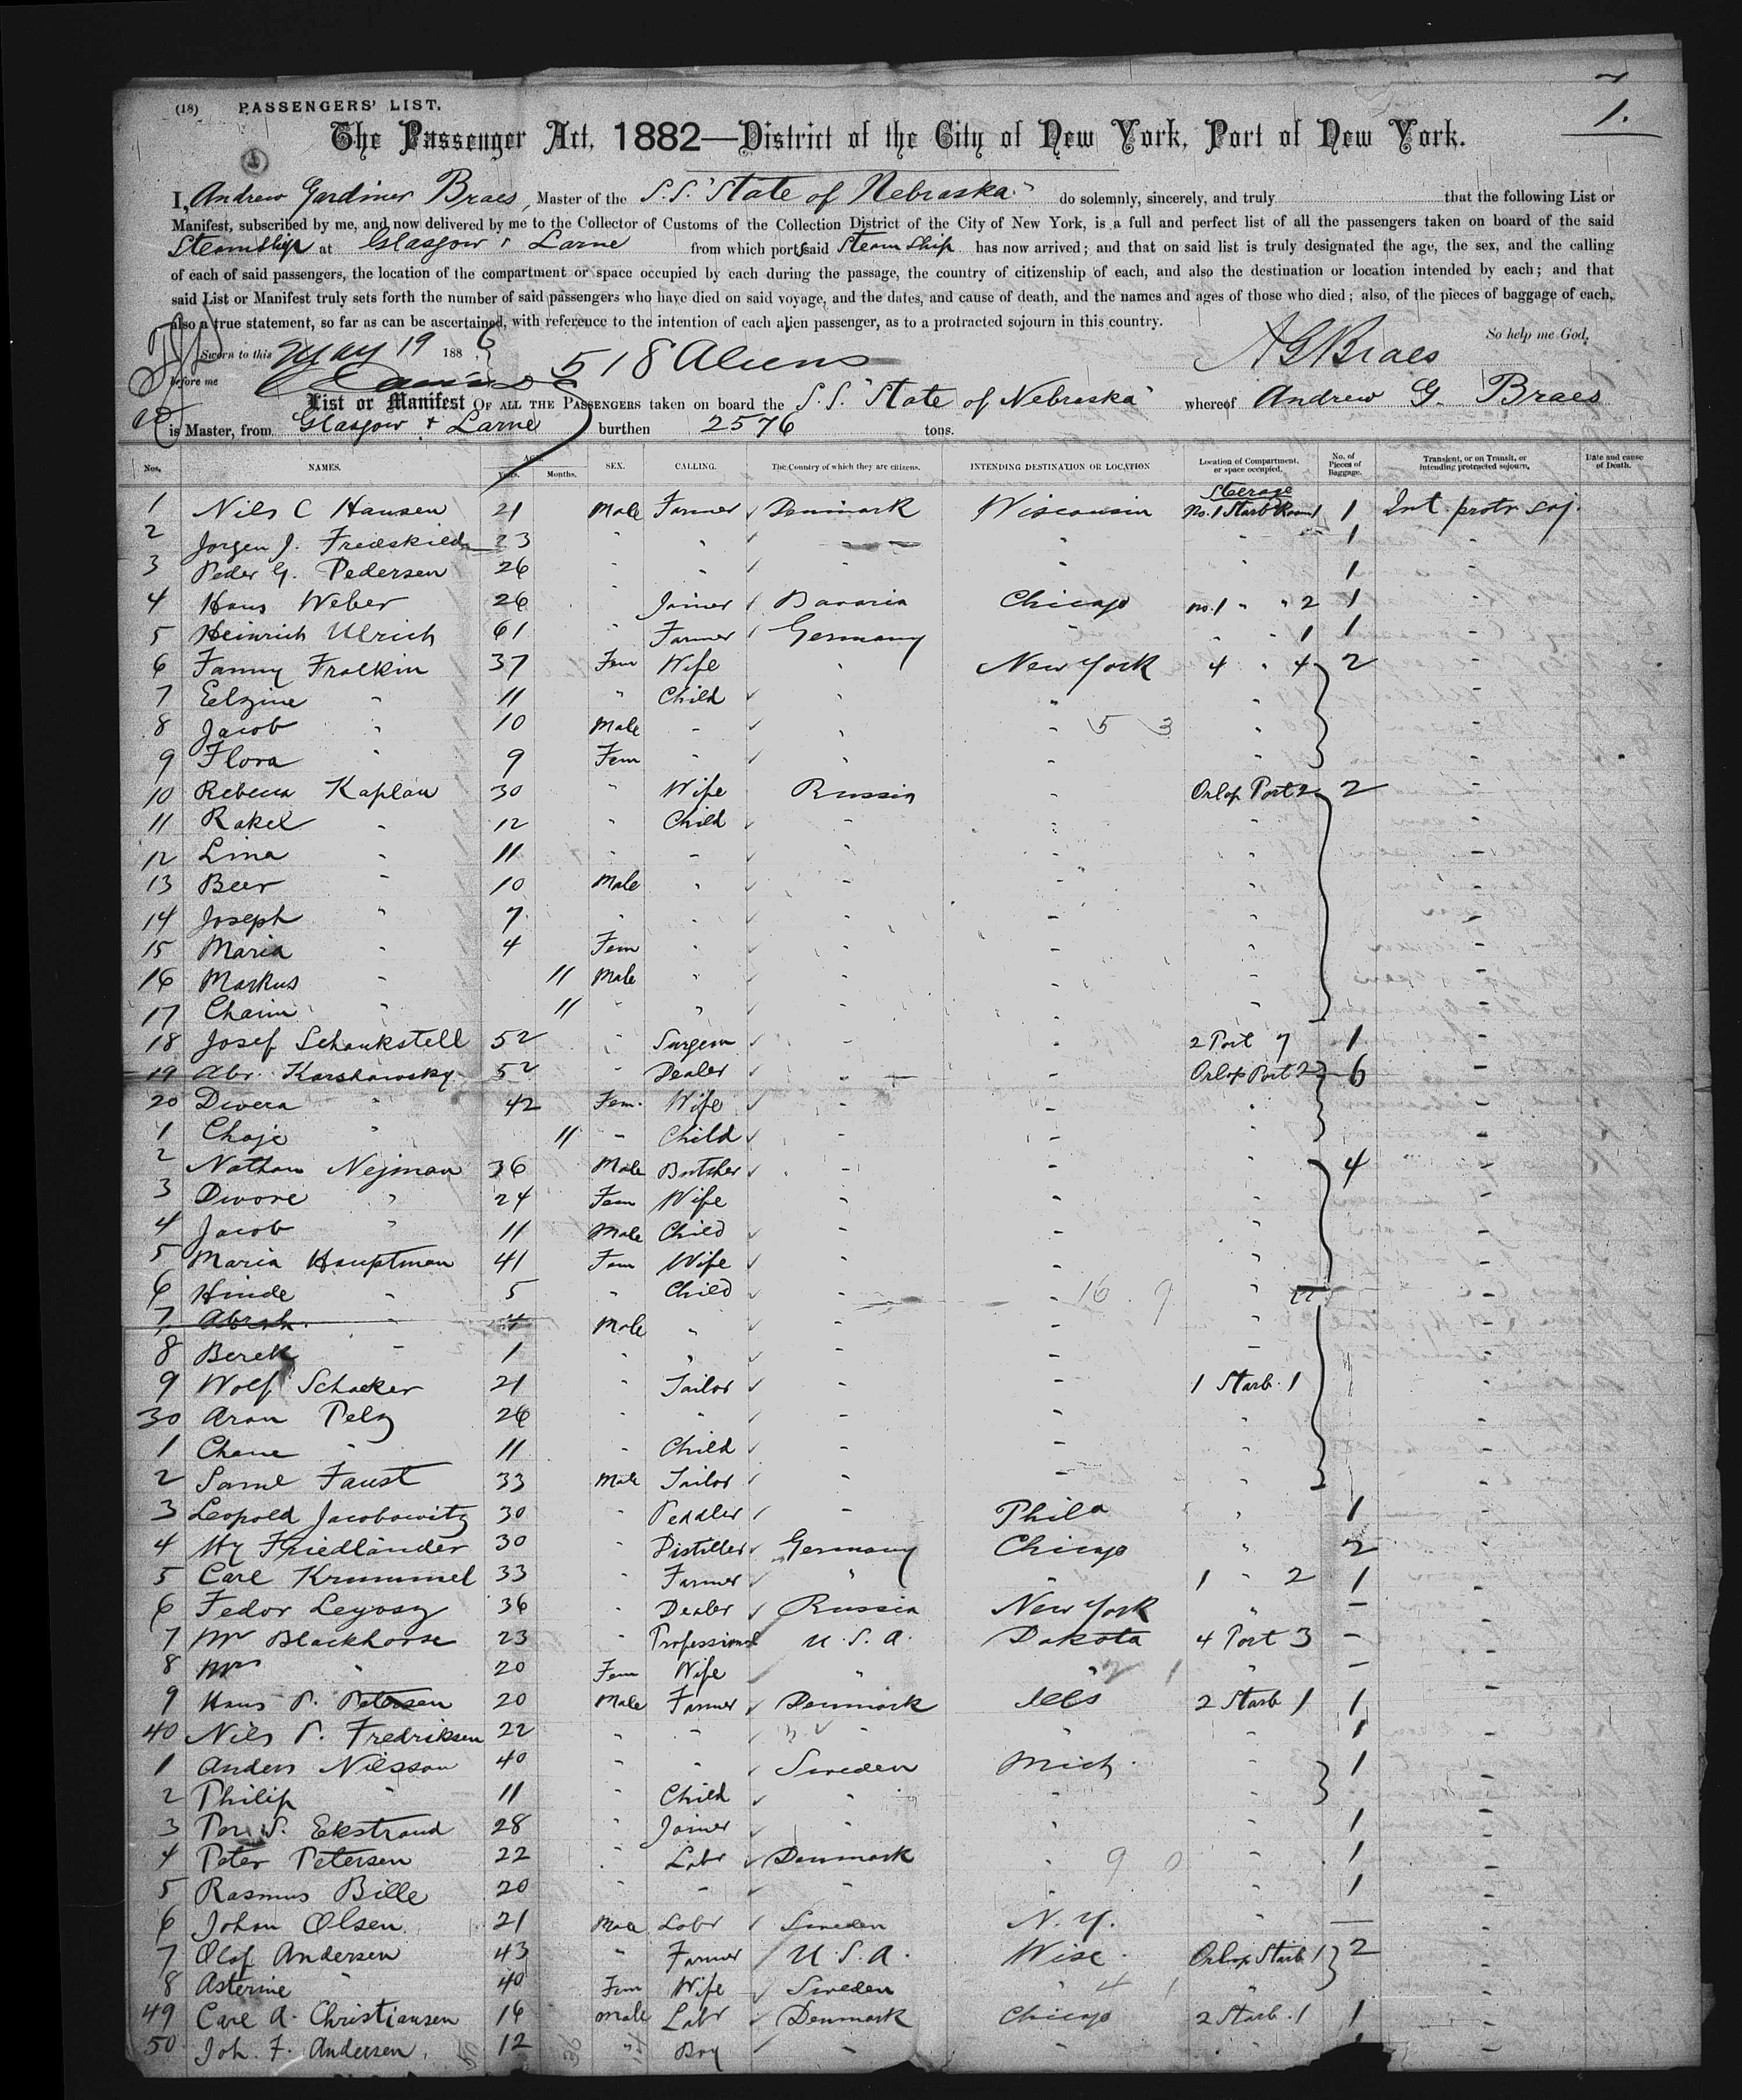 1.
(18) PASSENGERS' LIST.
The Passenger Act, 1882—District of the City of New York, Port of New York.
I, Andrew Gardiner Braes, Master of the S.S. "State of Nebraska" do solemnly, sincerely, and truly that the following List or
Manifest, subscribed by me, and now delivered by me to the Collector of Customs of the Collection District of the City of New York, is a full and perfect list of all the passengers taken on board of the said
Steamship at Glasgow & Larne from which port said Steam Ship has now arrived; and that on said list is truly designated the age, the sex, and the calling
of each of said passengers, the location of the compartment or space occupied by each during the passage, the country of citizenship of each, and also the destination or location intended by each; and that
said List or Manifest truly sets forth the number of said passengers who have died on said voyage, and the dates, and cause of death, and the names and ages of those who died; also, of the pieces of baggage of each,
also a true statement, so far as can be ascertained, with reference to the intention of each alien passenger, as to a protracted sojourn in this country.
So help me God,
Sworn to this May 19 1886 518 Aliens A G Braes
before me
List or Manifest OF ALL THE PASSENGERS taken on board the S.S. "State of Nebraska" whereof Andrew G. Braes
is Master, from Glasgow & Larne burthen 2576 tons.
Nos. NAMES. AGE. Years. Months. SEX. CALLING. The Country of which they are citizens. INTENDING DESTINATION OR LOCATION Location of Compartment, or space occupied. No. of Pieces of Baggage. Transient, or on Transit, or intending protracted sojourn. Date and cause of Death.
Steerage
1 Nils C Hansen 21 Male Farmer Denmark Wisconsin No. 1 Starb Room 1 1 Int. protr soj.
2 Jorgen J. Fredskild 23 " " " " " 1 "
3 Peder G. Pedersen 26 " " " " " 1 "
4 Hans Weber 26 Joiner Bavaria Chicago no. 1 " " 2 1 "
5 Heinrich Ulrich 61 " Farmer Germany " " " 1 1 "
6 Fanny Fralkin 37 Fem Wife " New York 4 " 4 2 "
7 Eelzine " 11 " Child " " " "
8 Jacob " 10 Male " " " 5 3 " "
9 Flora " 9 Fem " " " " "
10 Rebecca Kaplan 30 " Wife Russia " Orlop Port 2 2 "
11 Rakel " 12 " Child " " " "
12 Lina " 11 " " " " " "
13 Beer " 10 Male " " " " "
14 Joseph " 7 " " " " " "
15 Maria " 4 Fem " " " " "
16 Markus " 11 Male " " " " "
17 Chaim " 11 " " " " " "
18 Josef Schankstell 52 " Surgeon " " 2 Port 7 1 "
19 Abr. Karshawsky 52 " Dealer " " Orlop Port 2 6 "
20 Dweea " 42 Fem. Wife " " " "
1 Chaje " 11 " Child " " " "
2 Nathan Nejman 36 Male Butcher " " " 4 "
3 Dwore " 24 Fem Wife " " " "
4 Jacob " 11 Male Child " " " "
5 Maria Hauptman 41 Fem Wife " " " "
6 Hinde " 5 " Child " " 16 9 " "
7 Abrah. " 4 Male " " " " "
8 Berek " 1 " " " " " "
9 Wolf Schacker 21 " Tailor " " 1 Starb. 1 "
30 Aron Pelz 26 " " " " " "
1 Chane " 11 " Child " " " "
2 Saml Faust 33 Male Tailor " " " "
3 Leopold Jacobowitz 30 " Peddler " Phila " 1 "
4 Hy Friedländer 30 " Distiller Germany Chicago " 2 "
5 Carl Krummel 33 " Farmer " " 1 " 2 1 "
6 Fedor Leyosz 36 " Dealer Russia New York " — "
7 Mr Blackhorse 23 " Professional U.S.A. Dakota 4 Port 3 — "
8 Mrs " 20 Fem Wife " " " — "
9 Hans P. Petersen 20 Male Farmer Denmark Ills 2 Starb 1 1 "
40 Nils P. Fredriksen 22 " " " " " 1 "
1 Anders Nilsson 40 " " Sweden Mich. " 1 "
2 Philip " 11 " Child " " " "
3 Per S. Ekstrand 28 " Joiner " " " 1 "
4 Peter Petersen 22 " Labr Denmark " 9 0 " 1 "
5 Rasmus Bille 20 " " " " " 1 "
6 Johan Olsen 21 Male Labr Sweden N.Y. " — "
7 Olof Andersen 43 " Farmer U.S.A. Wisc. Orlop Starb 1 2 "
8 Asterine " 40 Fem Wife Sweden " 4 1 " "
49 Carl A. Christiansen 16 Male Labr Denmark Chicago 2 Starb. 1 1 "
50 Joh. F. Andersen. 12 " Boy " " " 1 "